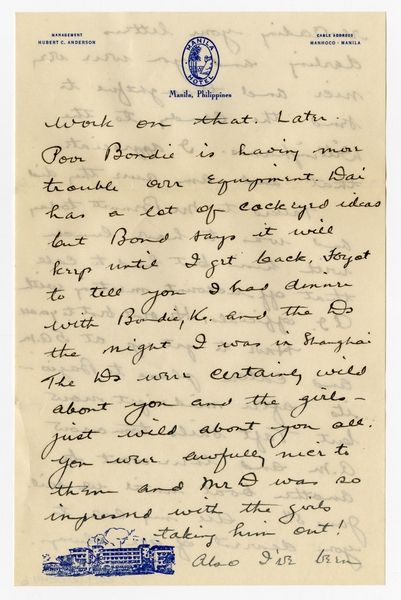 MANAGEMENT
HUBERT C. ANDERSON
MANILA HOTEL
CABLE ADDRESS
MANHOCO - MANILA
Manila, Philippines
work on that. Later.
Poor Bondie is having more
trouble over Equipment. Dai
has a lot of cockeyed ideas
but Bond says it will
keep until I get back. Forgot
to tell you I had dinner
with Bondie, K. and the Ds
the night I was in Shanghai
The Ds were certainly wild
about you and the girls –
just wild about you all.
You were awfully nice to
them and Mr D was so
impressed with the girls
taking him out!
Also I've been